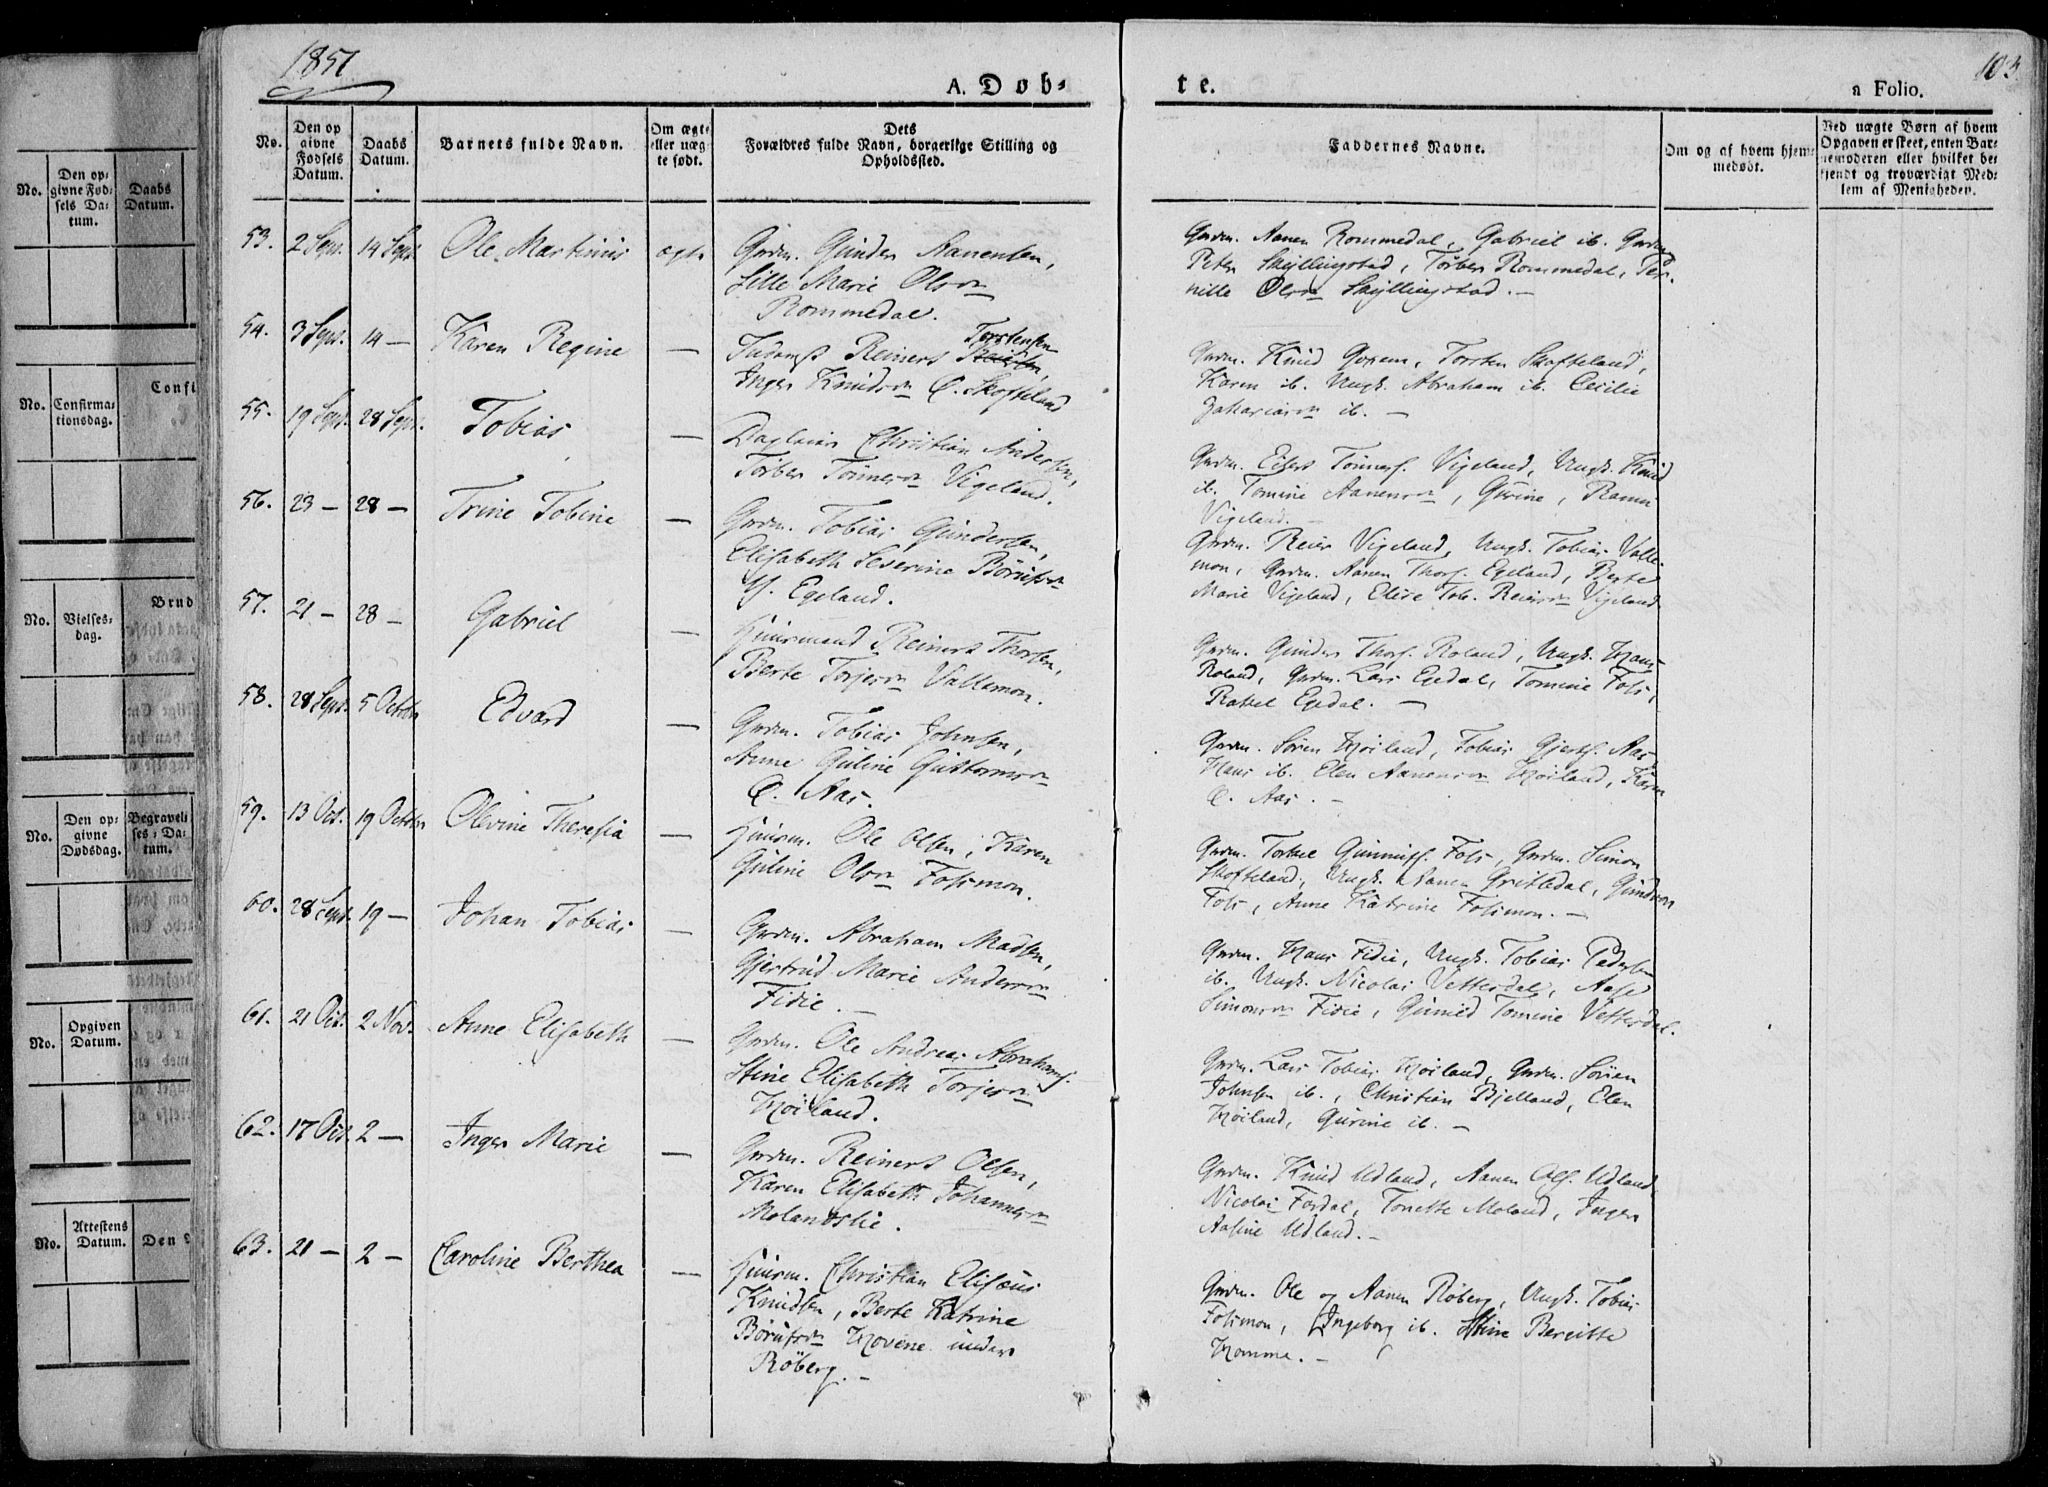 1851
103
A. Døb-
te.
a Folio.
No.
Den op
givne
Fødsels
Datum.
Daabs
Datum.
Barnets fulde Navn.
Om ægte
eller uæg-
te født.
Dets
Forældres fulde Navn, borgerlige Stilling og
Opholdssted.
Faddernes Navne.
Om og af hvem hjem-
medøbt.
Ved uægte Børn af hvem
Opgaven er skeet, enten Bar-
nemoderen eller hvilket be-
kjendt og troværdigt Med-
lem af Menigheden.
53. 2 Sept. 14 Sept. Ole Martinius ægte
Grdm. Gunder Aanensen,
Sille Marie Olsdr
Rommedal.
Grdm. Aanen Rommedal, Gabriel ib. Grdm.
Peter Skyllingstad, Torber Rommedal, Per-
nille Olsdr Skyllingstad. -
54. 3 Sept. 14 — Karen Regine —
Torstensen
Reinert
Inger Knudsdr Skofteland
Grdm. Knud Torsten Skofteland,
Karen ib. Ungk. Abraham ib. Cecilie
Zachariasdr ib. —
55. 19 Sept. 28 Sept. Tobias —
Daglejer Christian Andersen,
Torber Tønnesdr Vigeland.
Grdm. Eilert Tønnesf. Vigeland, Ungk. Knud
ib. Tomine Aanensdr, Gurine,
Vigeland. -
56. 23 — 28 — Trine Tobine —
Grdm. Tobias Gundersen,
Elisabeth Severine Børufsdr
Egeland.
Grdm. Reier Vigeland, Ungk. Tobias Valle-
mon, Grdm. Aanen Thorf. Egeland, Berte
Marie Vigeland, Elise Tob. Reiersdr Vigeland
57. 21 — 28 — Gabriel —
Huusmand Reinert Thorsen,
Berte Torjesdr Vallemon.
Grdm. Gunder Thorf. Roland, Ungk. Hans
Roland, Grdm. Lars Egedal, Tomine Foss,
Rakel Egedal. —
58. 28 Sept. 5 Octobr Edvard —
Grdm. Tobias Johnsen,
Anne Guline Guttormsdr
Aas.
Grdm. Søren Høiland, Tobias Gjertsf. Aas,
Hans ib. Elen Aanensdr Høiland, Karen
Aas. —
59. 13 Oct. 19 Octobr Olevine Theresia —
Huusm. Ole Olsen, Karen
Guline Olsdr Fossmon.
Grdm. Torkel Gunnufs. Foss, Grdm. Simon
Skofteland, Ungk. Aanen Gritledal, Gundvor
Foss, Anne Katrine Fossmon. —
60. 28 Sept. 19 — Johan Tobias —
Grdm. Abraham Madsen,
Gjertrud Marie Andersdr
Fidie. —
Grdm. Hans Fidie, Ungk. Tobias Pedersen
ib. Ungk. Nicolai Vettersdal, Aase
Simonsdr Fidie, Tomine Vettersdal.
61. 21 Oct. 2 Nov. Anne Elisabeth —
Grdm. Ole Andreas Abrahamf.
Stine Elisabeth Torjesdr
Høiland.
Grdm. Lars Tobias Høiland, Grdm. Søren
Johnsen ib., Christian Bjelland, Elen
Høiland, Gurine ib. —
62. 17 Oct. 2 — Inger Marie —
Grdm. Reinert Olsen,
Karen Elisabeth Johannesdr
Molandslie.
Grdm. Knud Udland, Aanen Olsf. Udland
Nicolai Fordal, Tonette Moland, Inger
Aasine Udland. -
63. 21 — 2 — Caroline Berthea —
Huusm. Christian Eliseus
Knudsen, Berte Katrine
Børufsdr Hovene under
Røberg. —
Grdm. Ole og Aanen Røberg, Ungk. Tobias
Fossmon, Ingeborg ib. Stine Bergitte
Homme. —
No.
Den op-
givne Fød-
sels Da-
tum.
Daabs
Datum.
Confi
No.
Confirma-
tionsdag.
Brud
No.
Vielses-
dag.
No.
Den op-
givne
Dødsdag.
Begravel-
ses-Da-
tum.
No.
Opgiven
Datum.
No.
Attestens
Datum.
Den